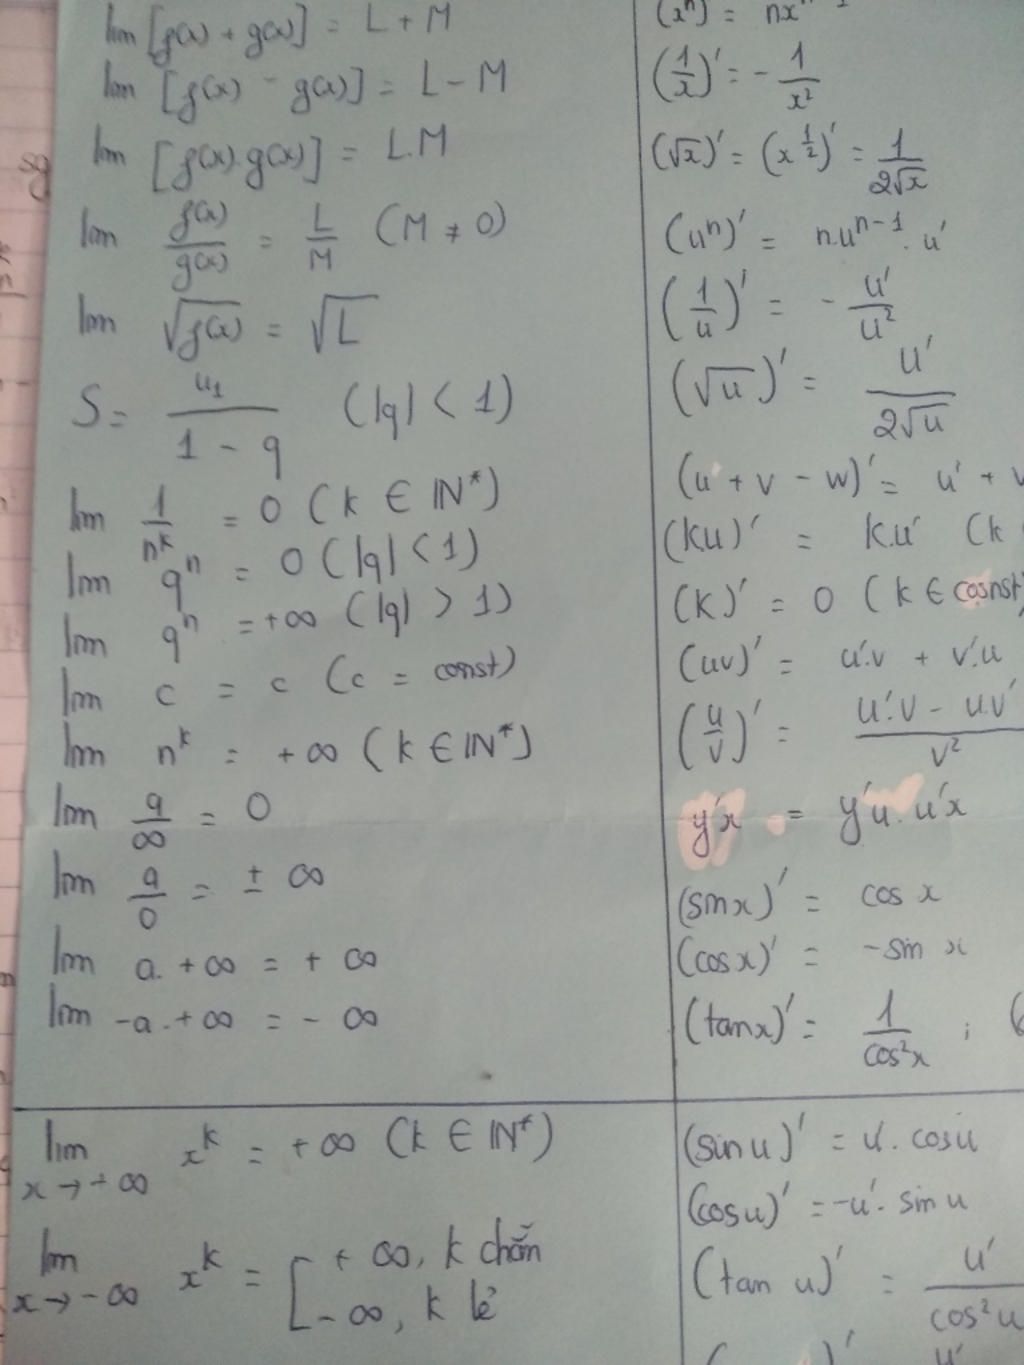 lim [f(x) + g(x)] = L + M
lim [f(x) - g(x)] = L - M
lim [f(x).g(x)] = L.M
lim f(x)/g(x) = L/M (M ≠ 0)
lim √f(x) = √L
S = u₁/(1 - q) (|q| < 1)
lim 1/nᵏ = 0 (k ∈ IN*)
lim qⁿ = 0 (|q| < 1)
lim qⁿ = +∞ (|q| > 1)
lim c = c (c = const)
lim nᵏ = +∞ (k ∈ IN*)
lim a/∞ = 0
lim a/0 = ± ∞
lim a. +∞ = + ∞
lim -a . +∞ = - ∞
lim x→+∞ xᵏ = +∞ (k ∈ IN*)
lim x→-∞ xᵏ = [ + ∞, k chẵn
- ∞, k lẻ
(xⁿ)' = nxⁿ⁻¹
(1/x)' = - 1/x²
(√x)' = (x^½)' = 1/2√x
(uⁿ)' = n.uⁿ⁻¹ . u'
(1/u)' = - u'/u²
(√u)' = u'/2√u
(u + v - w)' = u' + v
(ku)' = k.u' (k
(k)' = 0 (k ∈ const)
(uv)' = u'.v + v'.u
(u/v)' = (u'.v - u.v')/v²
y'x = y'u. u'x
(sinx)' = cos x
(cosx)' = -sin x
(tanx)' = 1/cos²x ; (
(sin u)' = u'. cosu
(cosu)' = -u'. sin u
(tan u)' = u'/cos²u